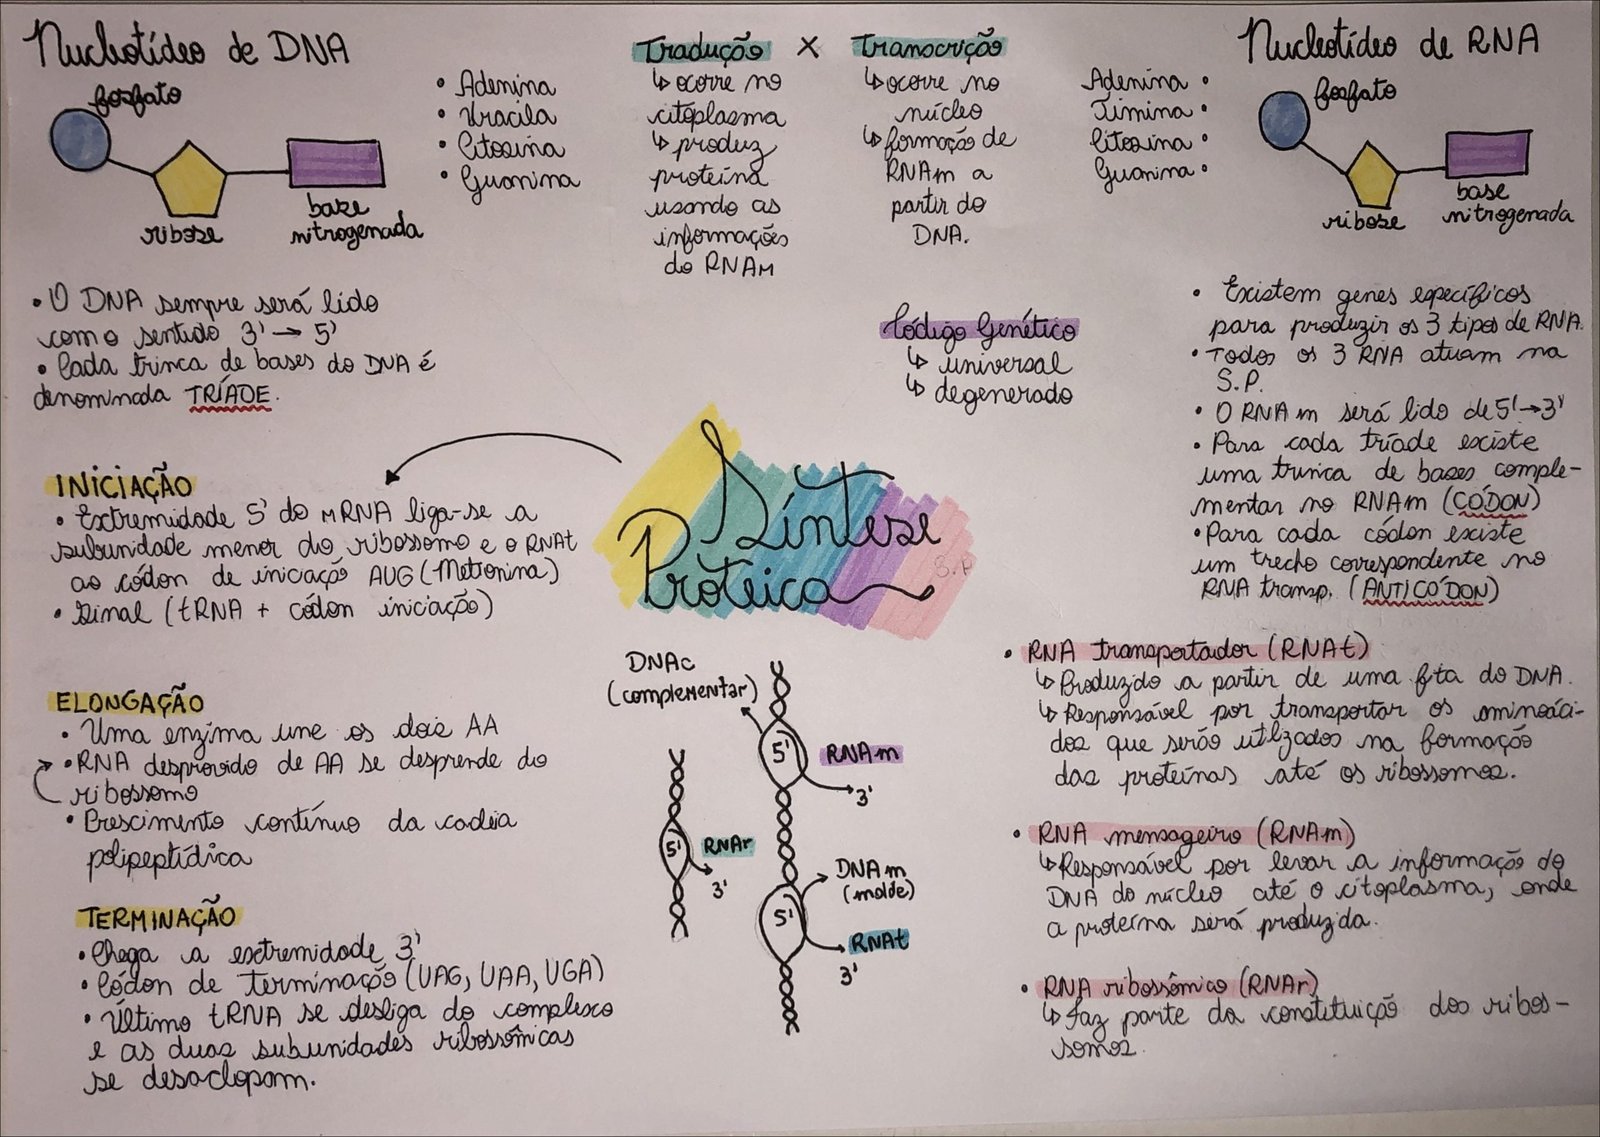 Nucleotídeo de DNA
fosfato
ribose
base
nitrogenada
• Adenina
• Uracila
• Citosina
• Guanina
Tradução X Transcrição
↳ ocorre no
citoplasma
↳ produz
proteína
usando as
informações
do RNAm
↳ ocorre no
núcleo
↳ formação de
RNAm a
partir do
DNA.
Nucleotídeo de RNA
Adenina •
Timina •
Citosina •
Guanina •
fosfato
ribose
base
nitrogenada
• O DNA sempre será lido
com o sentido 3' → 5'
• Cada trinca de bases do DNA é
denominada TRÍADE.
Código Genético
↳ universal
↳ degenerado
• Existem genes específicos
para produzir os 3 tipos de RNA.
• Todos os 3 RNA atuam na
S.P.
• O RNAm será lido de 5' → 3'
• Para cada tríade existe
uma trinca de bases comple-
mentar no RNAm (CÓDON)
• Para cada códon existe
um trecho correspondente no
RNA transp. (ANTICÓDON)
Síntese
Proteica
S.P
INICIAÇÃO
• Extremidade 5' do mRNA liga-se a
subunidade menor do ribossomo e o RNAt
ao códon de iniciação AUG (Metionina)
• Sinal (tRNA + códon iniciação)
ELONGAÇÃO
• Uma enzima une os dois AA
• RNA desprovido de AA se desprende do
ribossomo
• Crescimento contínuo da cadeia
polipeptídica
TERMINAÇÃO
• Chega a extremidade 3'
• Códon de terminação (UAG, UAA, UGA)
• Último tRNA se desliga do complexo
e as duas subunidades ribossômicas
se desaclopam.
DNAc
(complementar)
5'
RNAm
3'
5'
RNAr
3'
DNAm
(molde)
5'
RNAt
3'
• RNA transportador (RNAt)
↳ Produzido a partir de uma fita do DNA.
↳ Responsável por transportar os aminoáci-
dos que serão utilizados na formação
das proteínas até os ribossomos.
• RNA mensageiro (RNAm)
↳ Responsável por levar a informação do
DNA do núcleo até o citoplasma, onde
a proteína será produzida.
• RNA ribossômico (RNAr)
↳ Faz parte da constituição dos ribos-
somos.